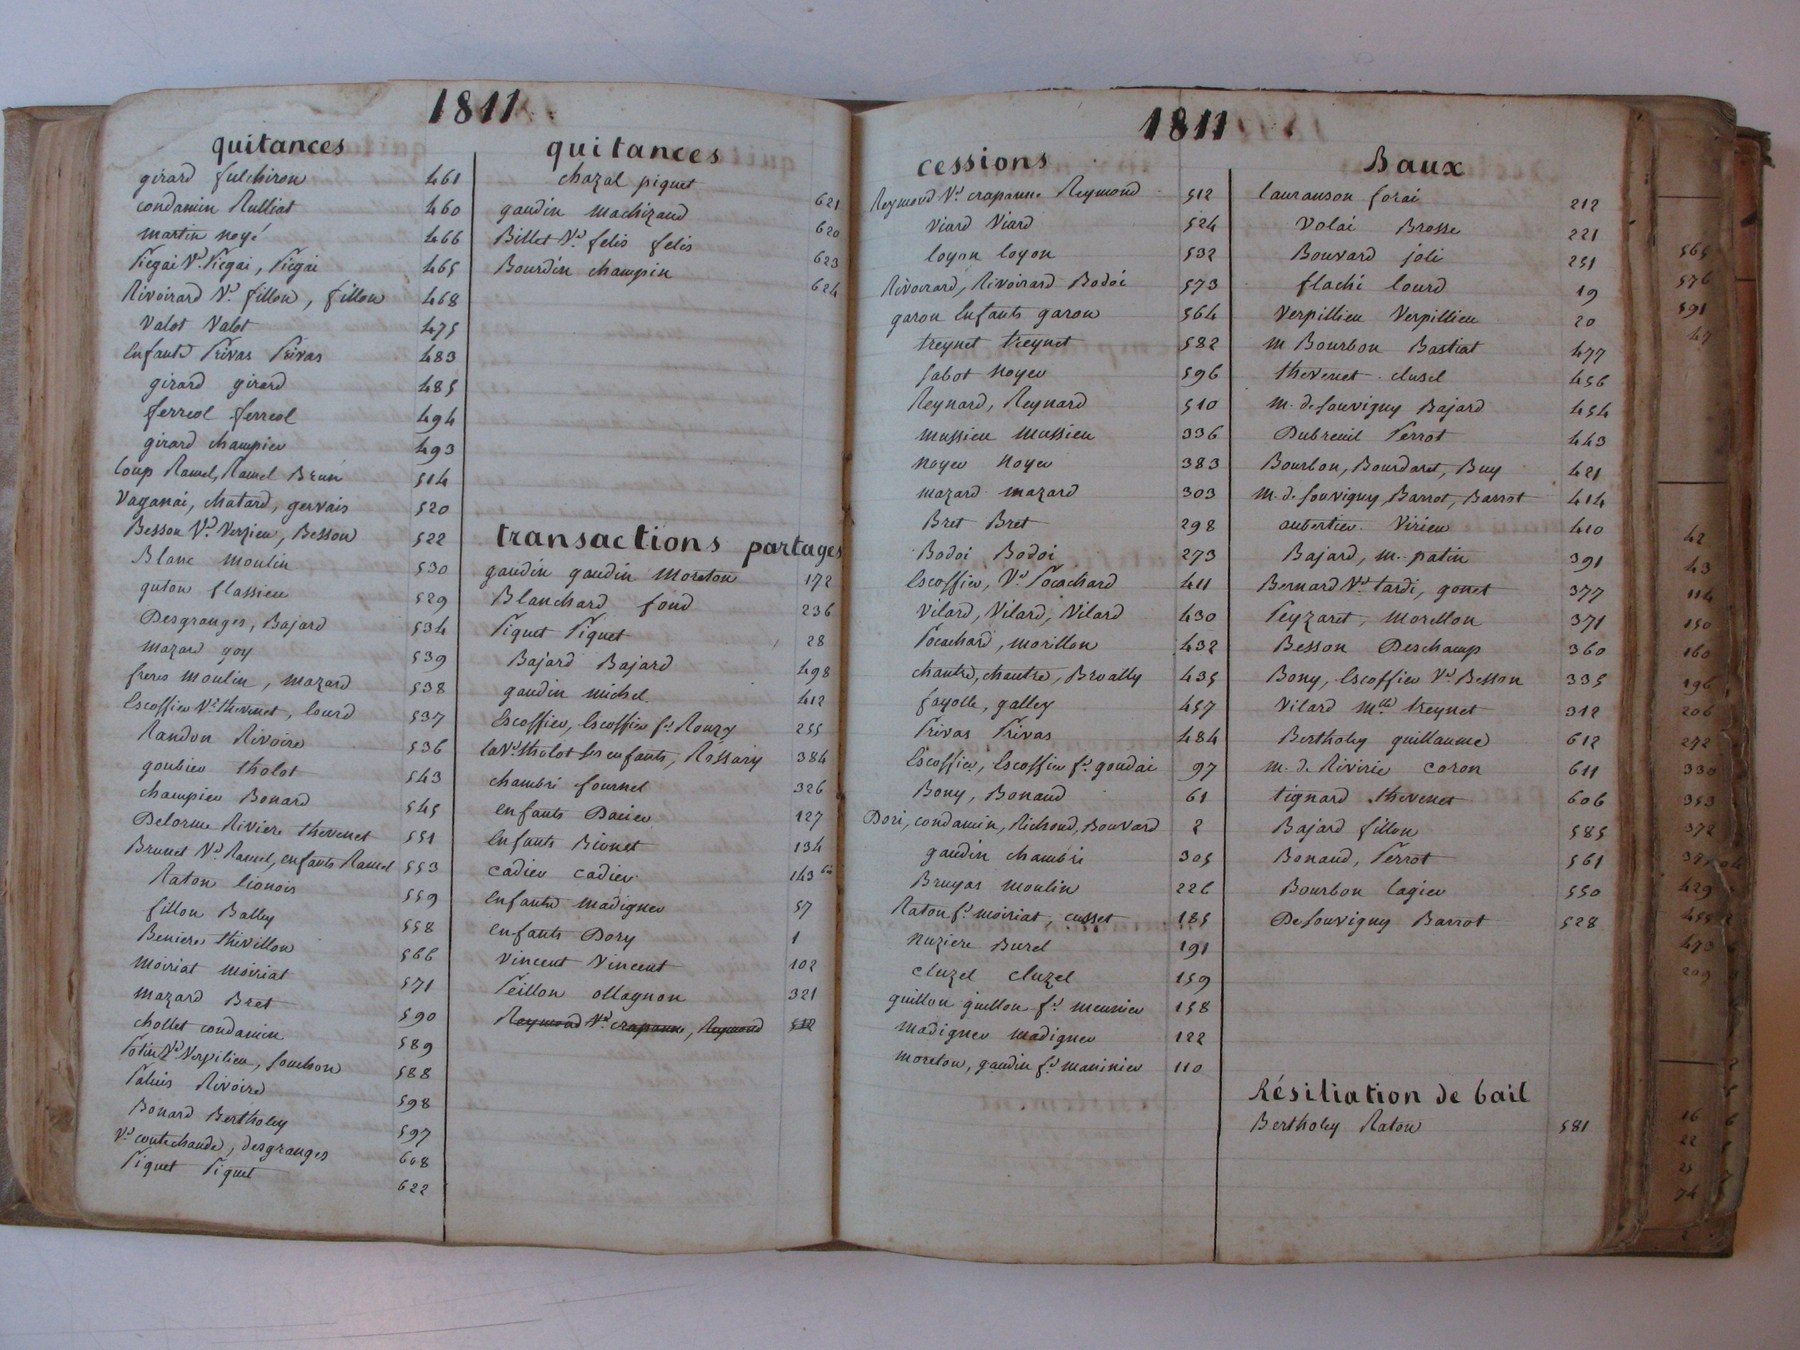 1811
quitances
girard fulchiron 461
condamin Rulliat 460
martin noyé 466
Piegai Vd. Piegai, Piegai 465
Rivoirard Vd. fillon, fillon 468
Valot Valot 475
Enfants Privas Privas 483
girard girard 485
ferreol ferreol 494
girard champier 493
Loup Ramel, Ramel Brun 514
Vaganai, chatard, gervais 520
Besson Vd. Verzieu, Besson 522
Blanc moulin 530
guton flassieu 529
Desgranges, Bajard 534
mazard goy 539
freres moulin, mazard 538
Escoffier Vd. thevenet, lourd 537
Randon Rivoire 536
goubier tholot 543
champier Bonard 545
Delorme Riviere thevenet 551
Brunet Vd. Ramel, enfants Ramel 553
Raton lionois 559
fillon Balley 558
Beniere thevillon 566
moiriat moiriat 571
mazard Bret 590
chollet condamin 589
Potin Vd Verpilieu, fourchon 588
Paluis Rivoire 598
Bonard Bertholey 597
Vd coutechaude, desgranges 608
Piguet Piguet 622
quitances
chazal piguet 621
gaudin machizaud 620
Billet Vd. felis felis 623
Bourdin champin 624
transactions partages
gaudin gaudin Moreton 172
Blanchard fond 236
Piguet Piguet 28
Bajard Bajard 498
gaudin michel 412
Escoffier, Escoffier fd. Rouzy 255
la Vd. tholot ses enfants, Rossary 384
chambri fournel 326
enfants Dacieu 127
Enfants Bionet 134
cadieu cadieu 143 bis
Enfants madignier 57
enfants Dory 1
Vincent Vincent 102
Peillon ollagnon 321
Reymond Vd. crapanne, Reymond 512
1811
cessions
Reymond Vd. crapanne Reymond 512
Viard Viard 524
loyon loyon 532
Rivoirard, Rivoirard Bodoi 573
garon Enfants garon 564
treynet treynet 582
Sabot noyer 596
Reynard, Reynard 510
mussieu mussieu 336
noyer noyer 383
mazard mazard 303
Bret Bret 298
Bodoi Bodoi 273
Escoffier, Vd Pocachard 411
Vilard, Vilard, Vilard 430
Pocachard, morillon 432
chantre, chantre, Broally 435
fayolle, galley 457
Privas Privas 484
Escoffier, Escoffier fd. goudai 97
Bony, Bonaud 61
Dori, condamin, Richoud, Bouvard 2
gaudin chambri 305
Bruyas moulin 226
Raton fd. moiriat, cusset 185
nuziere Burel 191
cluzel cluzel 159
guillon guillon fd. meunier 158
madignier madignier 122
moreton, gaudin fd. maninier 110
Baux
lauranson forai 212
Volai Brosse 221
Bouvard joli 251
flachi lourd 19
Verpillieu Verpillieu 20
m Bourbon Bastiat 477
thevenet clusel 456
m. de souvigny Bajard 454
Dubreuil Perrot 443
Bourbon, Bourdaret, Buy 421
m. de souvigny, Barrot, Barrot 414
aubertier Virieu 410
Bajard, m. patin 391
Bernard Vd. tardi, gonet 377
Peyzaret, morellon 371
Besson Deschamp 360
Bony, Escoffier Vd. Besson 335
Vilard mlle treynet 312
Bertholey guillaume 612
m. de Rivirie coron 611
tignard thevenet 606
Bajard fillon 585
Bonaud, Perrot 561
Bourbon lagier 550
De souvigny Barrot 528
Résiliation de bail
Bertholey Raton 581
565
576
591
47
42
43
114
150
160
196
206
272
330
353
372
429
455
473
209
16
22
25
74